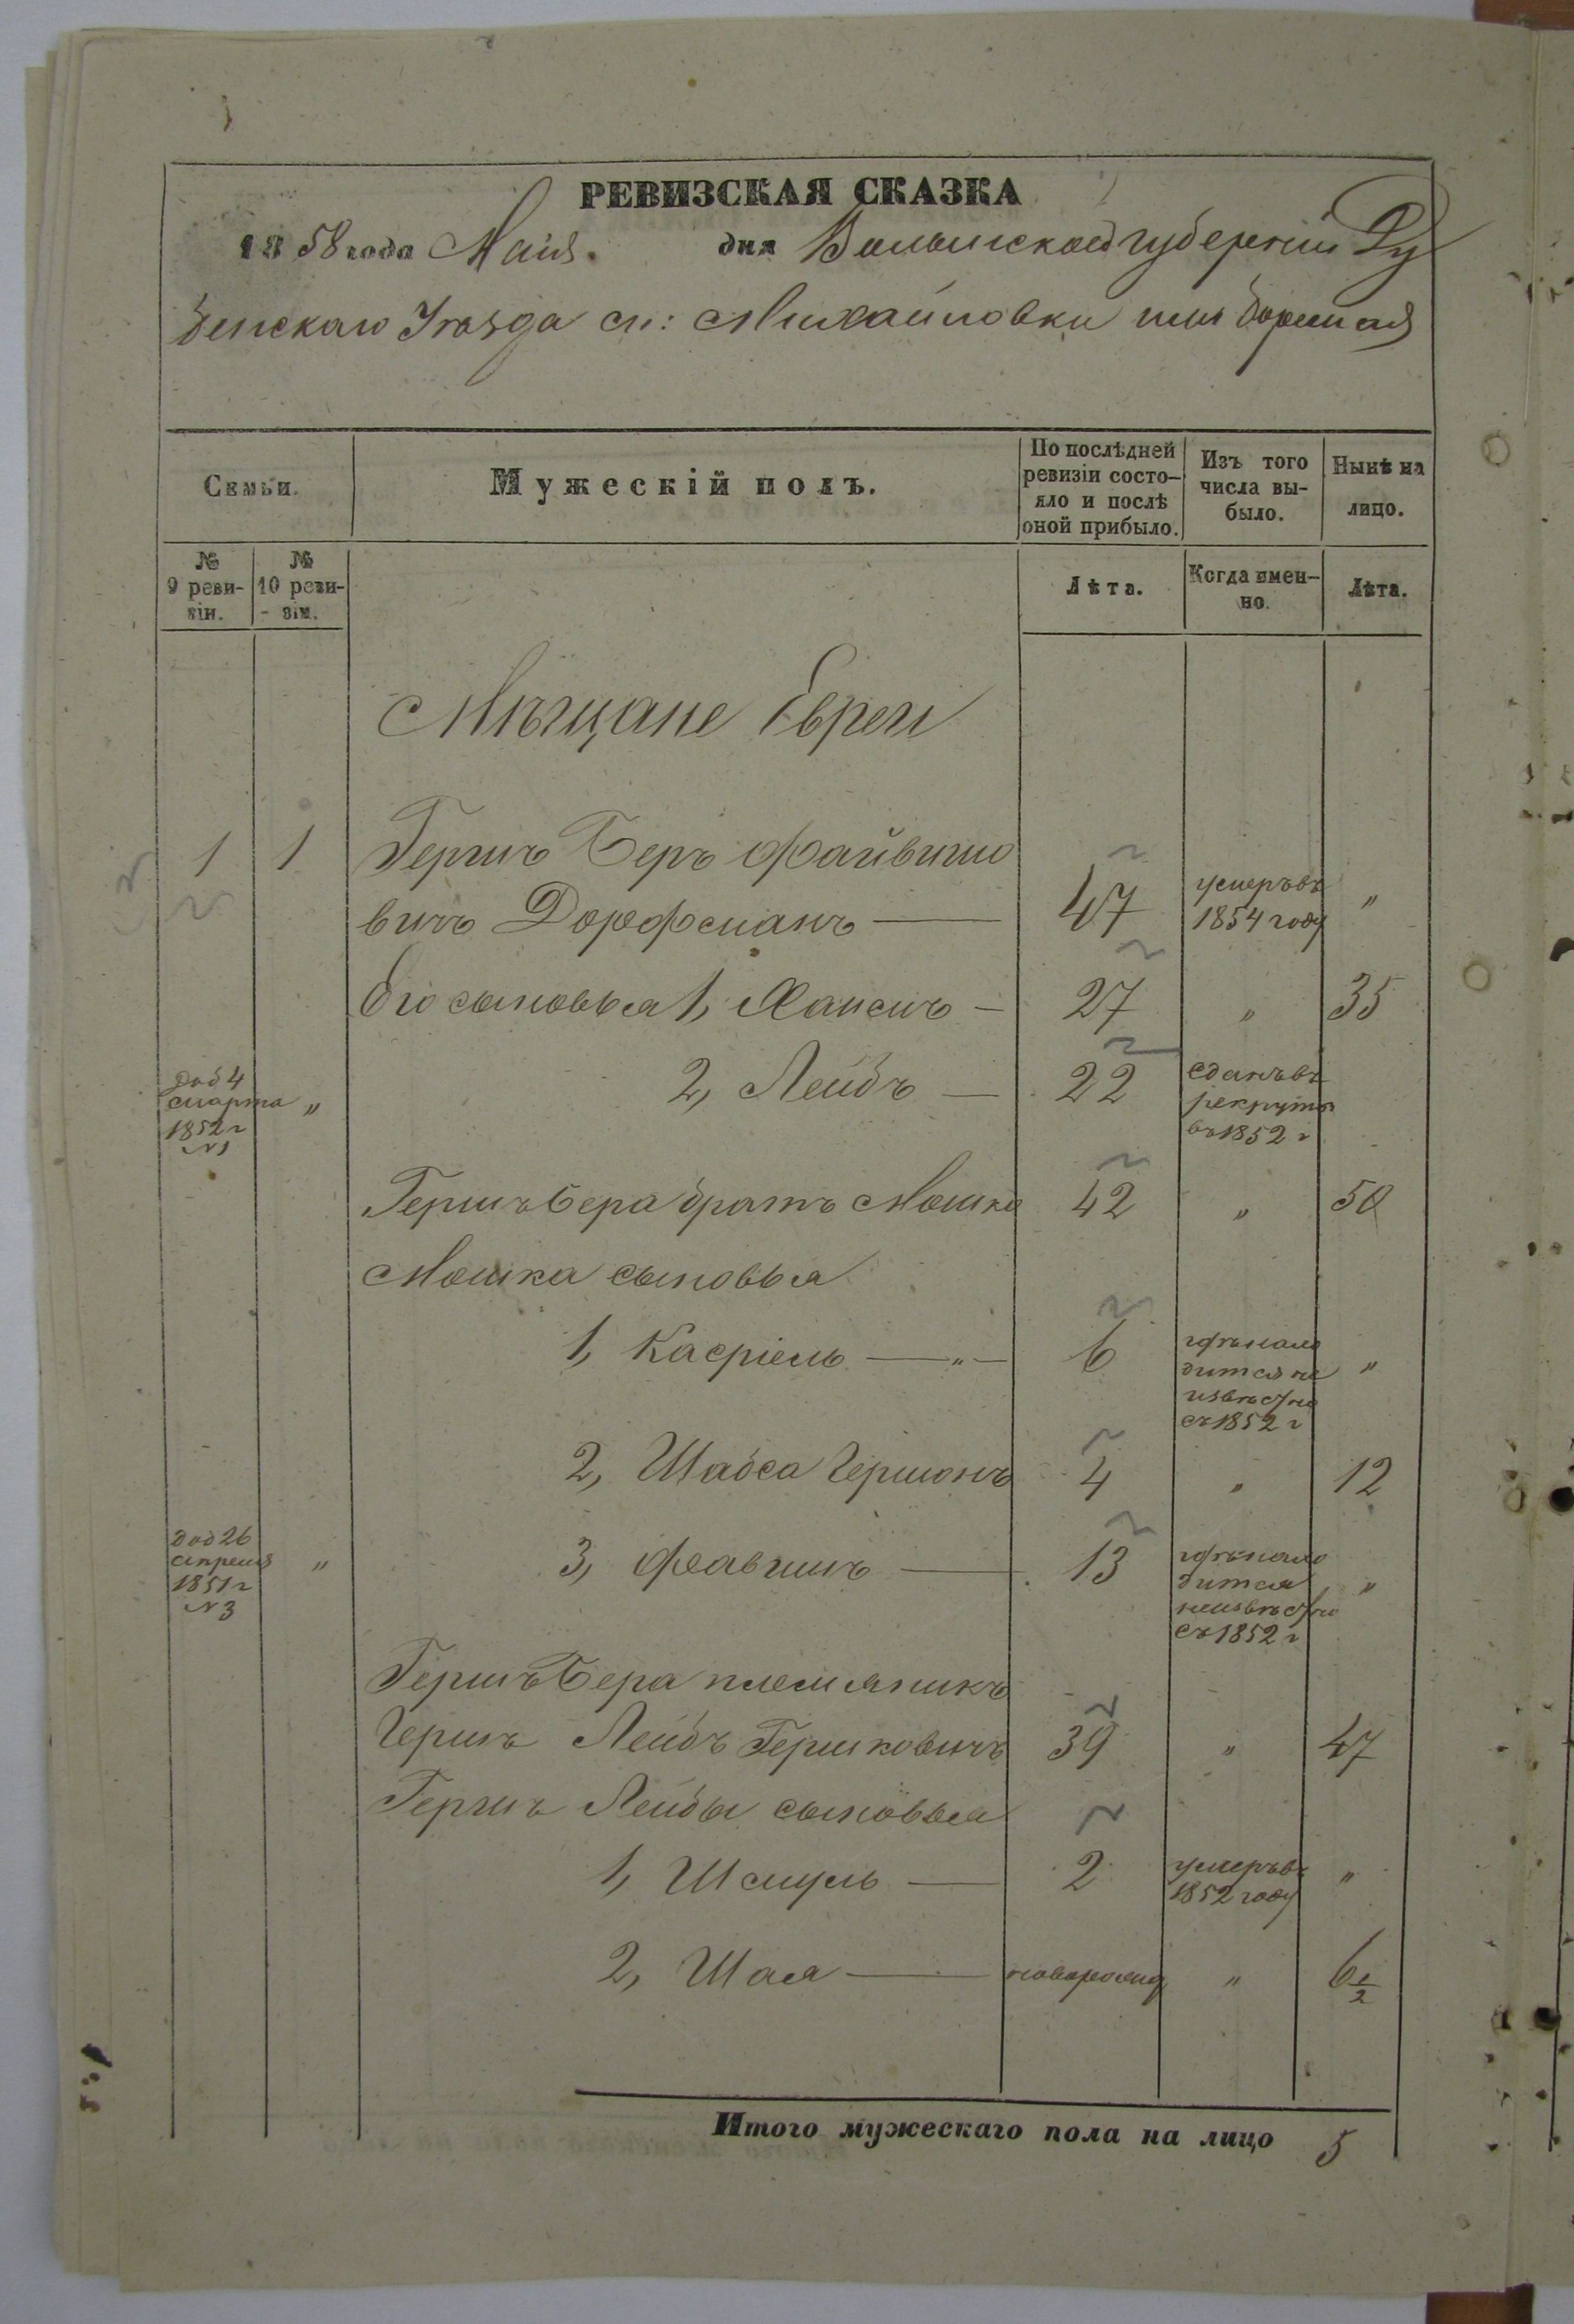 РЕВИЗСКАЯ СКАЗКА
1858 года Маія. дня Волынской губерніи Ду
бенскаго Уѣзда м: Михайловки или Боремля
Семьи.
Мужескій полъ.
По послѣдней ревизіи состо-
яло и послѣ оной прибыло.
Изъ того числа вы-
было.
Нынѣ на лицо.
№ 9 реви-
зіи.
№ 10 реви-
зіи.
Лѣта.
Когда имен-
но.
Лѣта.
Мѣщане Евреи
1 1 Гершъ Беръ Файвишо
вичъ Дорфманъ — 47 умеръ въ 1854 году „
Его сыновья 1, Хаимъ — 27 „ 35
доб 4 марта 1852 г N1 „ 2, Лейбъ — 22 сданъ въ рекруты въ 1852 г
Гершъ Бера братъ Мошко 42 „ 50
Мошка сыновья
1, Касріель — „ — 6 гдѣ нахо
дится не
извѣстно
съ 1852 г „
2, Шабса Гершонъ 4 „ 12
доб 26 апреля 1851 г N3 „ 3, Фавишъ — 13 гдѣ нахо
дится
неизвѣстно
съ 1852 г „
Гершъ Бера племяникъ
Гершъ Лейбъ Гершковичъ 39 „ 47
Гершъ Лейбы сыновья
1, Шмуль — 2 умеръ въ 1852 году „
2, Шая — новорожд „ 6 1/2
Итого мужескаго пола на лицо 5